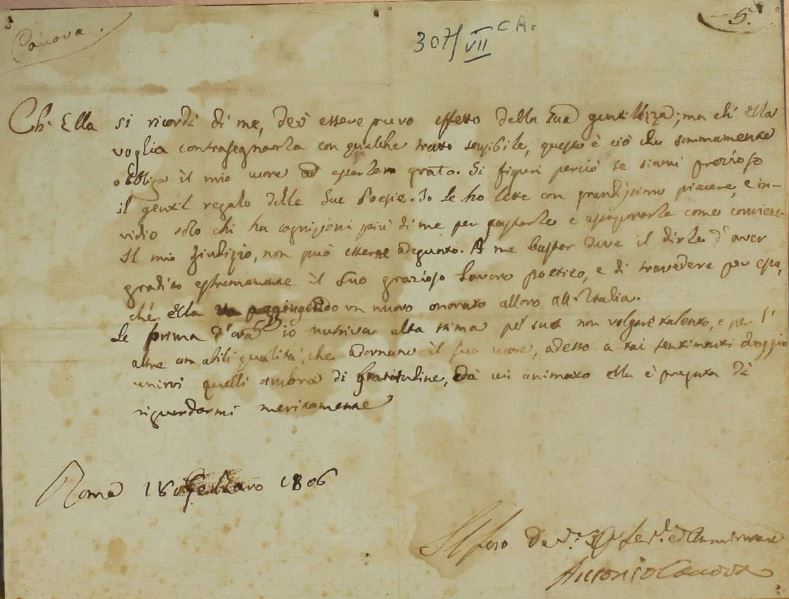 Canova.
307/VII CA.
5.
Ch' Ella si ricordi di me, dev' essere puro effetto della sua gentilezza; ma ch' ella
voglia contrasegnarla con qualche tratto sensibile, questo è ciò che sommamente
obbliga il mio cuore ad esserlene grato. Si figuri perciò se siami prezioso
il gentil regalo delle sue Poesie. Io le ho lette con grandissimo piacere, e in-
vidio solo chi ha cognizioni più di me per gustarle e assaporarle come conviene.
Il mio giudizio, non può essere adeguato. A me bastar deve il dirle d' aver
gradito estremamente il suo grazioso lavoro poetico, e di travedere per esso,
ché ella va un nuovo onorato alloro all' Italia.
Se prima d' ora io nutriva alta stima pel suo non volgare talento, e per l'
altre amabili qualità, che adornano il suo cuore, adesso a tai sentimenti deggio
unirvi quelli di gratitudine, da cui animato ella è pregata di
riguardarmi meritamente
Roma 18 1806
Suo Dev.o Se.r ed Ammiratore
Antonio Canova